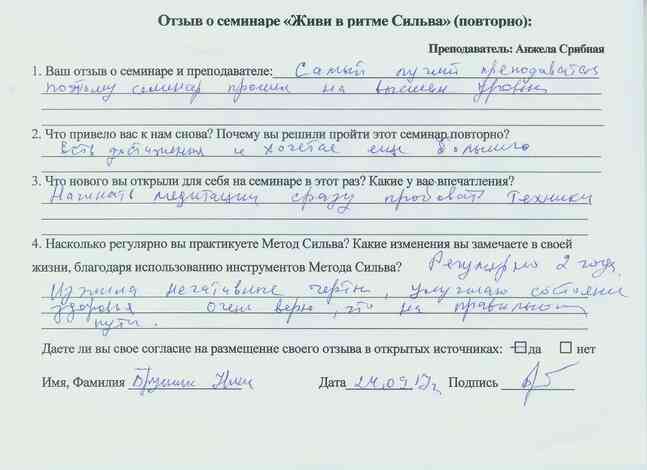 Отзыв о семинаре «Живи в ритме Сильва» (повторно):
Преподаватель: Анжела Срибная
1. Ваш отзыв о семинаре и преподавателе: Самый лучший преподаватель
поэтому семинар прошел на высшем уровне
2. Что привело вас к нам снова? Почему вы решили пройти этот семинар повторно?
Есть достижения и хочется еще большего
3. Что нового вы открыли для себя на семинаре в этот раз? Какие у вас впечатления?
Начинать медитации сразу пробовать техники
4. Насколько регулярно вы практикуете Метод Сильва? Какие изменения вы замечаете в своей
жизни, благодаря использованию инструментов Метода Сильва? Регулярно 2 года.
Изжила негативные черты, улучшаю состояние
здоровья Очень верю, что на правильном
пути.
Даете ли вы свое согласие на размещение своего отзыва в открытых источниках: да нет
Имя, Фамилия Дата 24.09.17г Подпись